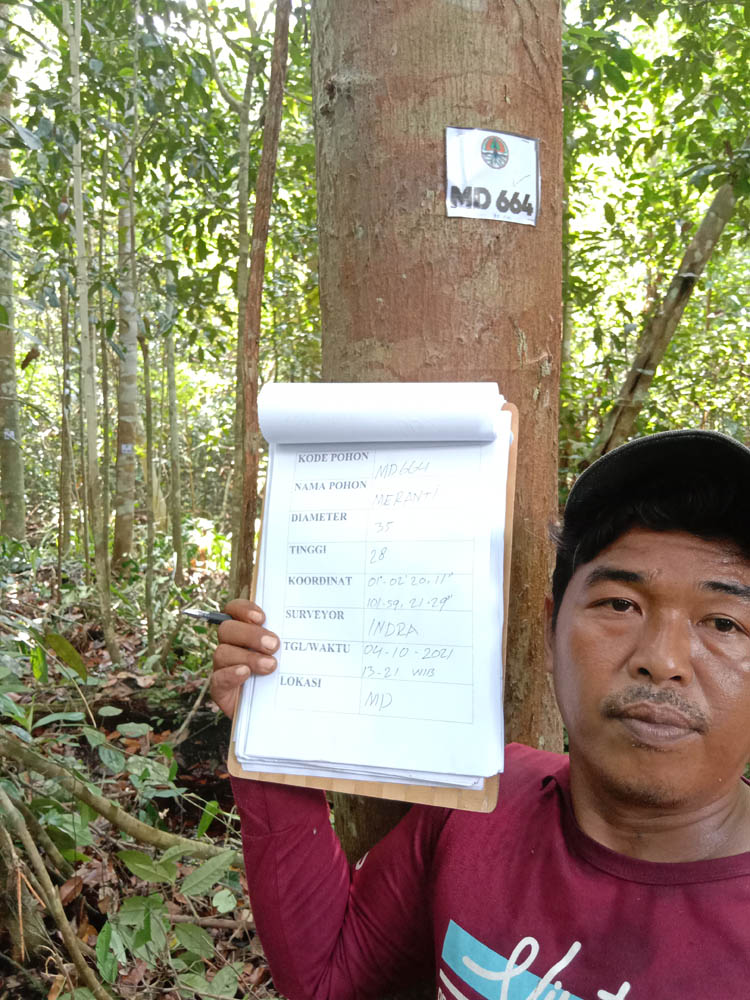 MD 664
KODE POHON MD664
NAMA POHON MERANTI
DIAMETER 35
TINGGI 28
KOORDINAT 01°.02'20.11"
101.59.21.29"
SURVEYOR INDRA
TGL/WAKTU 04-10-2021
13-21 WIB
LOKASI MD